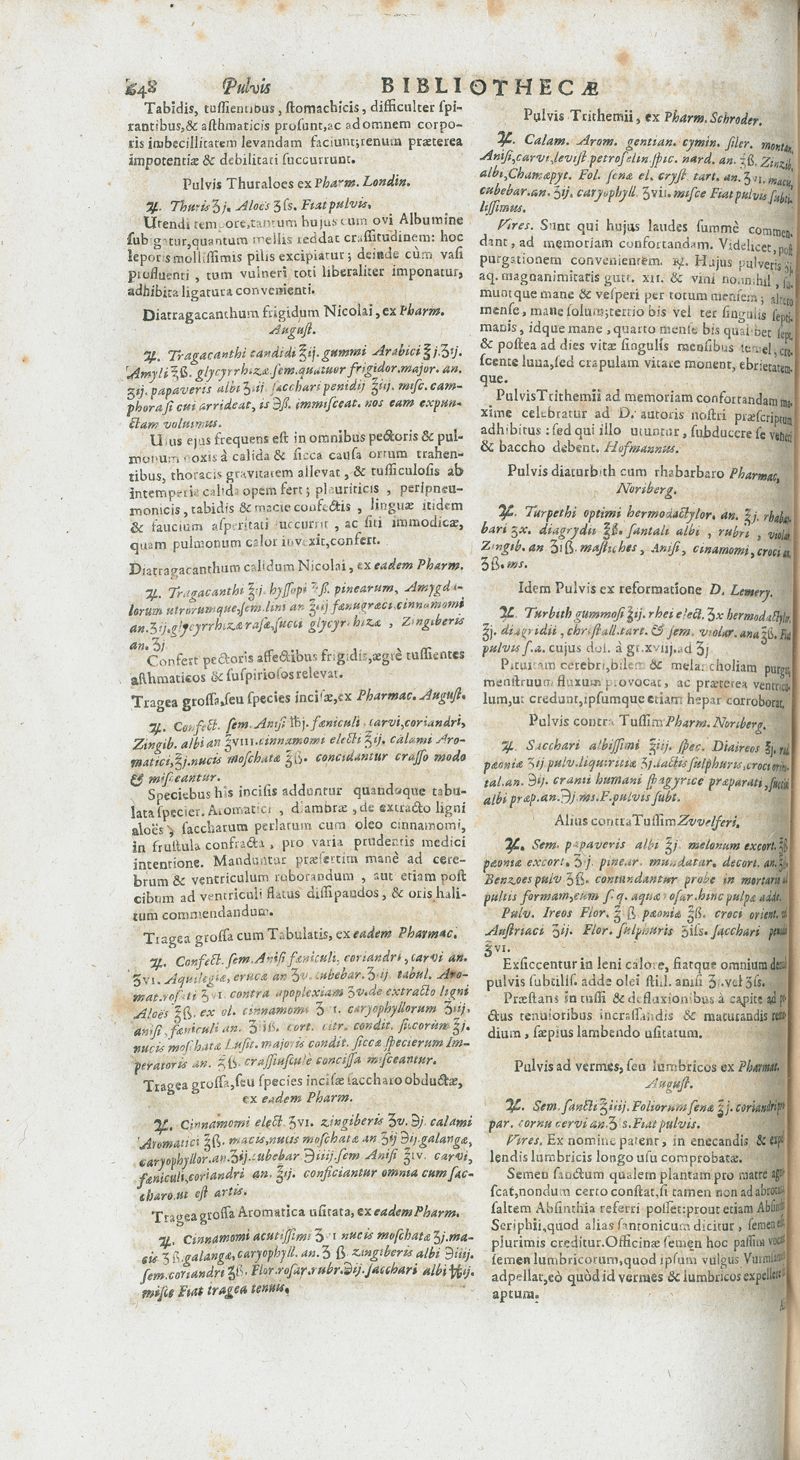 648 Pulvis BIBLIOTHECÆ
Tabidis, tussientibus, stomachicis, difficulter spi-
rantibus,& asthmaticis prosunt,ac ad omnem corpo-
ris imbecillitatem levandam faciunt;renum præterea
impotentiæ & debilitati succurrunt.
Pulvis Thuraloes ex Pharm. Londin.
℞. Thuris ʒj. Aloes ʒſs. Fiat pulvis,
Utendi tempore,tantum hujus cum ovi Albumine
subigatur,quantum mellis reddat crassitudinem: hoc
leporis mollissimis pilis excipiatur; deinde cùm vasi
profluenti, tum vulneri toti liberaliter imponatur,
adhibita ligatura convenienti.
Diatragacanthum frigidum Nicolai, ex Pharm.
August.
℞. Tragacanthi candidi ℥ij. gummi Arabici ℥j.ʒij.
Amyli ℥ß. glycyrrhizæ.sem.quatuor frigidor.major. an.
ʒij. papaveris albi ʒiij sacchari penidij ℥iij. misc. cam-
phora si cui arrideat, is ℈ß. immisceat. nos eam expun-
ctam volumus.
Usus ejus frequens est in omnibus pectoris & pul-
monum noxis à calida & sicca causa ortum trahen-
tibus, thoracis gravitatem allevat, & tussiculosis ab
intemperie calida opem fert; pleuriticis, peripneu-
monicis, tabidis & macie confectis, linguæ itidem
& faucium asperitati succurrit, ac siti immodicæ,
quam pulmonum calor invexit,confert.
Diatragacanthum calidum Nicolai, ex eadem Pharm.
℞. Tragacanthi ℥ij. hyssopi ℥ß. pinearum, Amygda-
lorum utrorumque,sem.lini an ℥iij fœnugræci,cinnamomi
an.ʒij.glycyrrhizæ rasæ,succi glycyrrhizæ, Zingiberis
an. ʒj
Confert pectoris affectibus frigidis,ægrè tussientes
asthmaticos & suspiriosos relevat.
Tragea grossa,seu species incisæ,ex Pharmac. August.
℞. Confect. sem. Anisi ℔j. fœniculi, carvi,coriandri,
Zingib. albi an ℥viii.cinnamomi electi ℥ij. calami Aro-
matici,℥j.nucis moschatæ ℥ß. concidantur crasso modo
& misceantur.
Speciebus his incisis adduntur quandoque tabu-
lata specier. Aromatici, diambræ, de extracto ligni
aloës, saccharum perlatum cum oleo cinnamomi,
in frustula confracta, pro varia prudentis medici
intentione. Manduntur præsertim manè ad cere-
brum & ventriculum roborandum, aut etiam post
cibum ad ventriculi flatus dissipandos, & oris hali-
tum commendandum.
Tragea grossa cum Tabulatis, ex eadem Pharmac.
℞. Confect. sem. Anisi fœniculi, coriandri, carvi an.
ʒvi. Aquilegiæ, erucæ an ʒv. cubebar.ʒij. tabul. Aro-
mat.rosati ʒvi. contra apoplexiam ʒv.de extracto ligni
Aloës ℥ß. ex ol. cinnamomi caryophyllorum ʒiij,
anisi, fœniculi an. cort. citr. condit. siccorum ℥j.
nucis moschatæ Lusit. majoris condit. siccæ specierum Im-
peratoris an. ℥ß. crassiuscule concissa misceantur.
Tragea grossa,seu species incisæ saccharo obductæ,
ex eadem Pharm.
℞. Cinnamomi elect. ʒvi. zingiberis ʒv. ℈j. calami
Aromatici ℥ß. macis,nucis moschatæ an ʒij ℈ij.galangæ,
caryophyllor.an.ʒij.cubebar ℈iiij.sem Anisi ℥iv. carvi,
fœniculi,coriandri an. ℥ij. conficiantur omnia cum sac-
charo,ut est artis.
Tragea grossa Aromatica usitata, ex eadem Pharm.
℞. Cinnamomi acutissimi ʒvi nucis moschatæ ℥j.ma-
cis ʒß.galangæ,caryophyll. an.ʒ ß. zingiberis albi ℈iiij.
sem.coriandri ℥ß. Flor.rosar.rubr.℈ij.sacchari albi ℔ij.
misce Fiat tragea tenuis.
Pulvis Trithemii, ex Pharm. Schroder.
℞. Calam. Arom. gentian. cymin. siler. montan.
Anisi,carvi,levist petroselin.spic. nard. an. ʒß. Zinzib.
albi,Chamæpyt. Fol. senæ el. cryst tart. an.ʒvi. macis,
cubebar.an. ʒij. caryophyll. ʒvii. misce Fiat pulvis subti-
lissimus.
Vires. Sunt qui hujus laudes summè commen-
dant, ad memoriam confortandam. Videlicet, post
purgationem convenientem. ℞. Hujus pulveris ʒj.
aq. magnanimitatis gutt. xii. & vini nonnihil, su-
muntque mane & vesperi per totum mensem; altero
mense, mane solum;tertio bis vel ter singulis septi-
manis, idque mane, quarto mense bis qualibet sept.
& postea ad dies vitæ singulis mensibus semel, cre-
scente luna,sed crapulam vitare monent, ebrietatem-
que.
Pulvis Trithemii ad memoriam confortandam ma-
xime celebratur ad D. autoris nostri præscriptum
adhibitus: sed qui illo utuntur, subducere se veneri
& baccho debent. Hofmannus.
Pulvis diaturbith cum rhabarbaro Pharmac.
Noriberg.
℞. Turpethi optimi hermodactylor. an. ℥j. rhabar-
bari ʒx. diagrydii ℥ß. santali albi, rubri, violar.
Zingib. an ʒiß. mastiches, Anisi, cinamomi, croci an.
ʒß. ms.
Idem Pulvis ex reformatione D. Lemery.
℞. Turbith gummosi ℥ij. rhei elect. ʒx hermodactylor.
℥j. diagridii, christall.tart. & sem. violar. ana ℥ß. Fiat
pulvis s.a. cujus dos. à gr.xviij.ad ʒj
Pituitam cerebri,bilem & melancholiam purgat,
menstruum fluxum provocat, ac præterea ventricu-
lum,ut credunt,ipsumque etiam hepar corroborat.
Pulvis contra Tussim Pharm. Noriberg.
℞. Sacchari albissimi ℥iij. spec. Diaireos ℥j. rad.
pæoniæ ʒij pulv.liquiritiæ ʒj.lactis sulphuris,croci orien-
tal.an. ℈ij. cranii humani spagyrice præparati, succini
albi præp.an.℈j ms.F.pulvis subt.
Alius contra Tussim Zvvelferi.
℞. Sem. papaveris albi ℥j. melonum excort. ℥ß
pæoniæ excort. ʒj. pinear. mundatar. decort. an.℥ß.
Benzoes pulv ʒß. contundantur probe in mortario ad
pultis formam,cum s.q. aquæ rosar.hinc pulpæ adde.
Pulv. Ireos Flor. ℥ß pæoniæ ℥ß. croci orient. vel
Austriaci ʒij. Flor. sulphuris ʒiſs. sacchari penidii
℥vi.
Exsiccentur in leni calore, fiatque omnium deni
pulvis subtilis. adde olei stil. anisi vel ʒſs.
Præstans in tussi & defluxionibus à capite ad pe-
ctus tenuioribus incrassandis & maturandis reme-
dium, sæpius lambendo usitatum.
Pulvis ad vermes, seu lumbricos ex Pharmac.
August.
℞. Sem. sancti ℥iiij. Foliorum senæ ℥j. coriandri præ-
par. cornu cervi an.ʒſs.Fiat pulvis.
Vires. Ex nomine patent, in enecandis & expel-
lendis lumbricis longo usu comprobatæ.
Semen sanctum qualem plantam pro matre agno-
scat,nondum certo constat,si tamen non ad abrotanum
saltem Absinthia referri possèt:prout etiam Absinthii
Seriphii,quod alias santonicum dicitur, semen esse
plurimis creditur.Officinæ semen hoc passim vocant
semen lumbricorum,quod ipsum vulgus Vurmsamen
adpellat,eò quòd id vermes & lumbricos expellere
aptum.